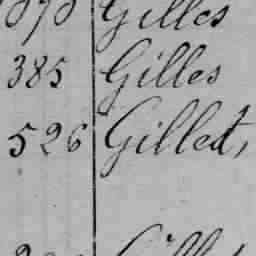 Gilles
385 Gilles
526 Gillet,